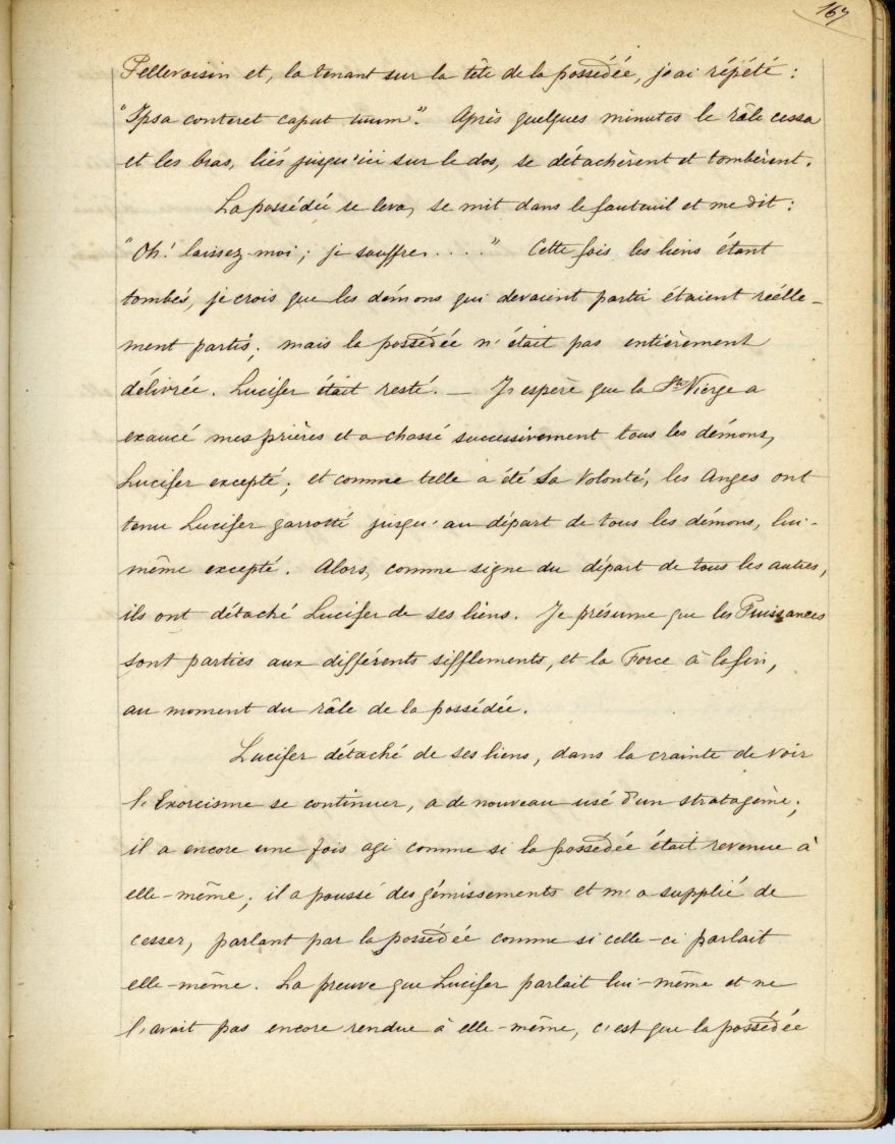 167
Pellevoisin et, la tenant sur la tête de la possédée, j'ai répété :
"Ipsa conteret caput tuum". Après quelques minutes le râle cessa
et les bras, liés jusqu'ici sur le dos, se détachèrent et tombèrent.
La possédée se leva, se mit dans le fauteuil et me dit :
"Oh! laissez-moi ; je souffre. . . . ." Cette fois les liens étant
tombés, je crois que les démons qui devaient partir étaient réelle-
ment partis ; mais la possédée n'était pas entièrement
délivrée. Lucifer était resté. — J'espère que la Ste Vierge a
exaucé mes prières et a chassé successivement tous les démons,
Lucifer excepté ; et comme telle a été Sa Volonté, les Anges ont
tenu Lucifer garrotté jusqu'au départ de tous les démons, lui-
même excepté. Alors, comme signe du départ de tous les autres,
ils ont détaché Lucifer de ses liens. Je présume que les Puissances
sont parties aux différents sifflements, et la Force à la fin,
au moment du râle de la possédée.
Lucifer détaché de ses liens, dans la crainte de voir
l'Exorcisme se continuer, a de nouveau usé d'un stratagème ;
il a encore une fois agi comme si la possédée était revenue à
elle-même ; il a poussé des gémissements et m'a supplié de
cesser, parlant par la possédée comme si celle-ci parlait
elle-même. La preuve que Lucifer parlait lui-même et ne
l'avait pas encore rendue à elle-même, c'est que la possédée